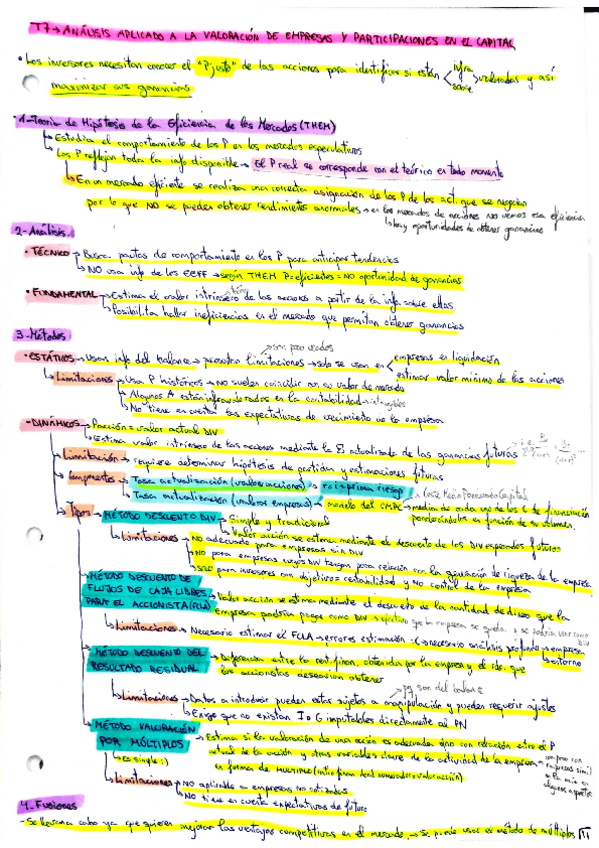 T7→ ANÁLISIS APLICADO A LA VALORACIÓN DE EMPRESAS Y PARTICIPACIONES EN EL CAPITAL
• Los inversores necesitan conocer el "P justo" de las acciones para identificar si están < infra sobre valoradas y así
maximizar sus ganancias
1-Teoría de Hipótesis de la Eficiencia de los Mercados (THEM)
↳ Estudia el comportamiento de los P en los mercados especulativos
Los P reflejan toda la info disponible → El P real se corresponde con el teórico en todo momento
↳ En un mercado eficiente se realiza una correcta asignación de los P de las act. que se negocian
por lo que NO se pueden obtener rendimientos anormales → en los mercados de acciones no vemos esa eficiencia
↳ hay oportunidades de obtener ganancias
2-Análisis
• TÉCNICO → Busca pautas de comportamiento en los P para anticipar tendencias
↳ NO usa info de los EEFF → según THEM P=eficientes = NO oportunidad de ganancias
• FUNDAMENTAL → Estima el valor intrínseco de las acciones a partir de la info. sobre ellas
↳ Posibilita hallar ineficiencias en el mercado que permitan obtener ganancias
3-Métodos
→ son poco usados
• ESTÁTICOS → Usan info del balance → presentan limitaciones → solo se usan en < empresas en liquidación
estimar valor mínimo de las acciones
↳ Limitaciones → Usa P históricos → NO suelen coincidir con su valor de mercado
Algunos A están infravalorados en la contabilidad → intangibles
↳ No tiene en cuenta las expectativas de crecimiento de la empresa
• DINÁMICOS → P acción = valor actual DIV
↳ Estima valor intrínseco de las acciones mediante la Σ actualizada de las ganancias futuras
↳ Limitación → requiere determinar hipótesis de partida y estimaciones futuras
↳ Componentes → Tasa actualización (valorar acciones) → rf + prima riesgo
↳ Tasa actualización (valorar empresas) → modelo del CMPC → median de cada uno de los C de financiación
→ Coste Medio Ponderado Capital
ponderándolos en función de su volumen.
↳ Tipos → MÉTODO DESCUENTO DIV → Simple y tradicional
↳ Valor acción se estima mediante el descuento de los DIV esperados futuros
↳ Limitaciones → NO adecuado para empresas sin DIV
NO para empresas cuyos DIV tengan poca relación con la generación de riqueza de la empresa
↳ SOLO para inversores con objetivos rentabilidad y NO control de la empresa
MÉTODO DESCUENTO DE
FLUJOS DE CAJA LIBRES
PARA EL ACCIONISTA (FCLA)
→ Valor acción se estima mediante el descuento de la cantidad de dinero que la
empresa podría pagar como DIV → efectivo que la empresa se queda → se podría usar como DIV
↳ Limitaciones → Necesario estimar el FCLA → errores estimación → necesario análisis profundo < empresa
entorno
MÉTODO DESCUENTO DEL
RESULTADO RESIDUAL
→ Diferencia entre la rent. finan. obtenida por la empresa y el rdo. que
los accionistas desearían obtener
→ pq son del balance
↳ Limitaciones → Datos a introducir pueden estar sujetos a manipulación y pueden requerir ajustes
↳ Exige que no existan I o G imputables directamente al PN
MÉTODO VALORACIÓN
POR MÚLTIPLOS
↳ es simple :)
→ Estima si la valoración de una acción es adecuada o no con relación entre el P
actual de la acción y otras variables clave de la actividad de la empresa → comparo con
empresas simil
a la mía en
algunos aspectos
en forma de MÚLTIPLO
↳ Limitaciones → NO aplicable a empresas no cotizadas
↳ NO tiene en cuenta expectativas de futuro
4-Fusiones
- Se llevan a cabo ya que quieren mejorar las ventajas competitivas en el mercado. → Se puede usar el método de múltiplos